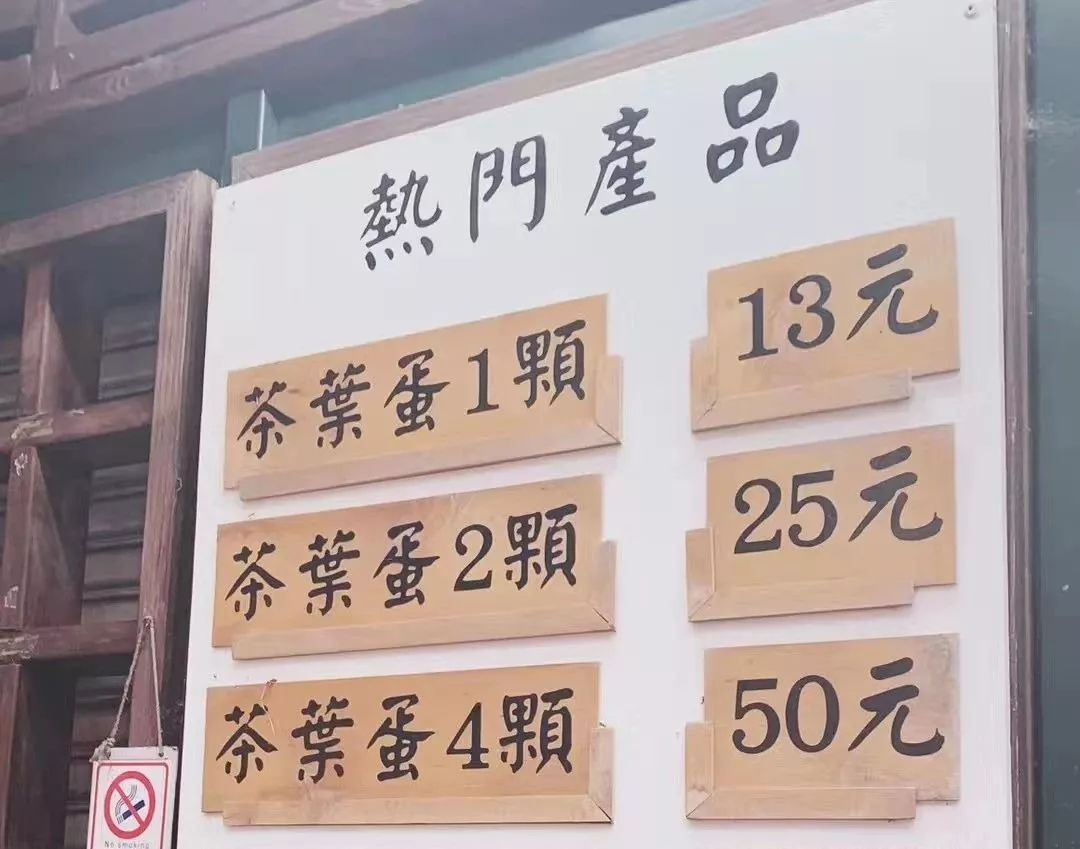 熱門產品
茶葉蛋1顆 13元
茶葉蛋2顆 25元
茶葉蛋4顆 50元
No smoking